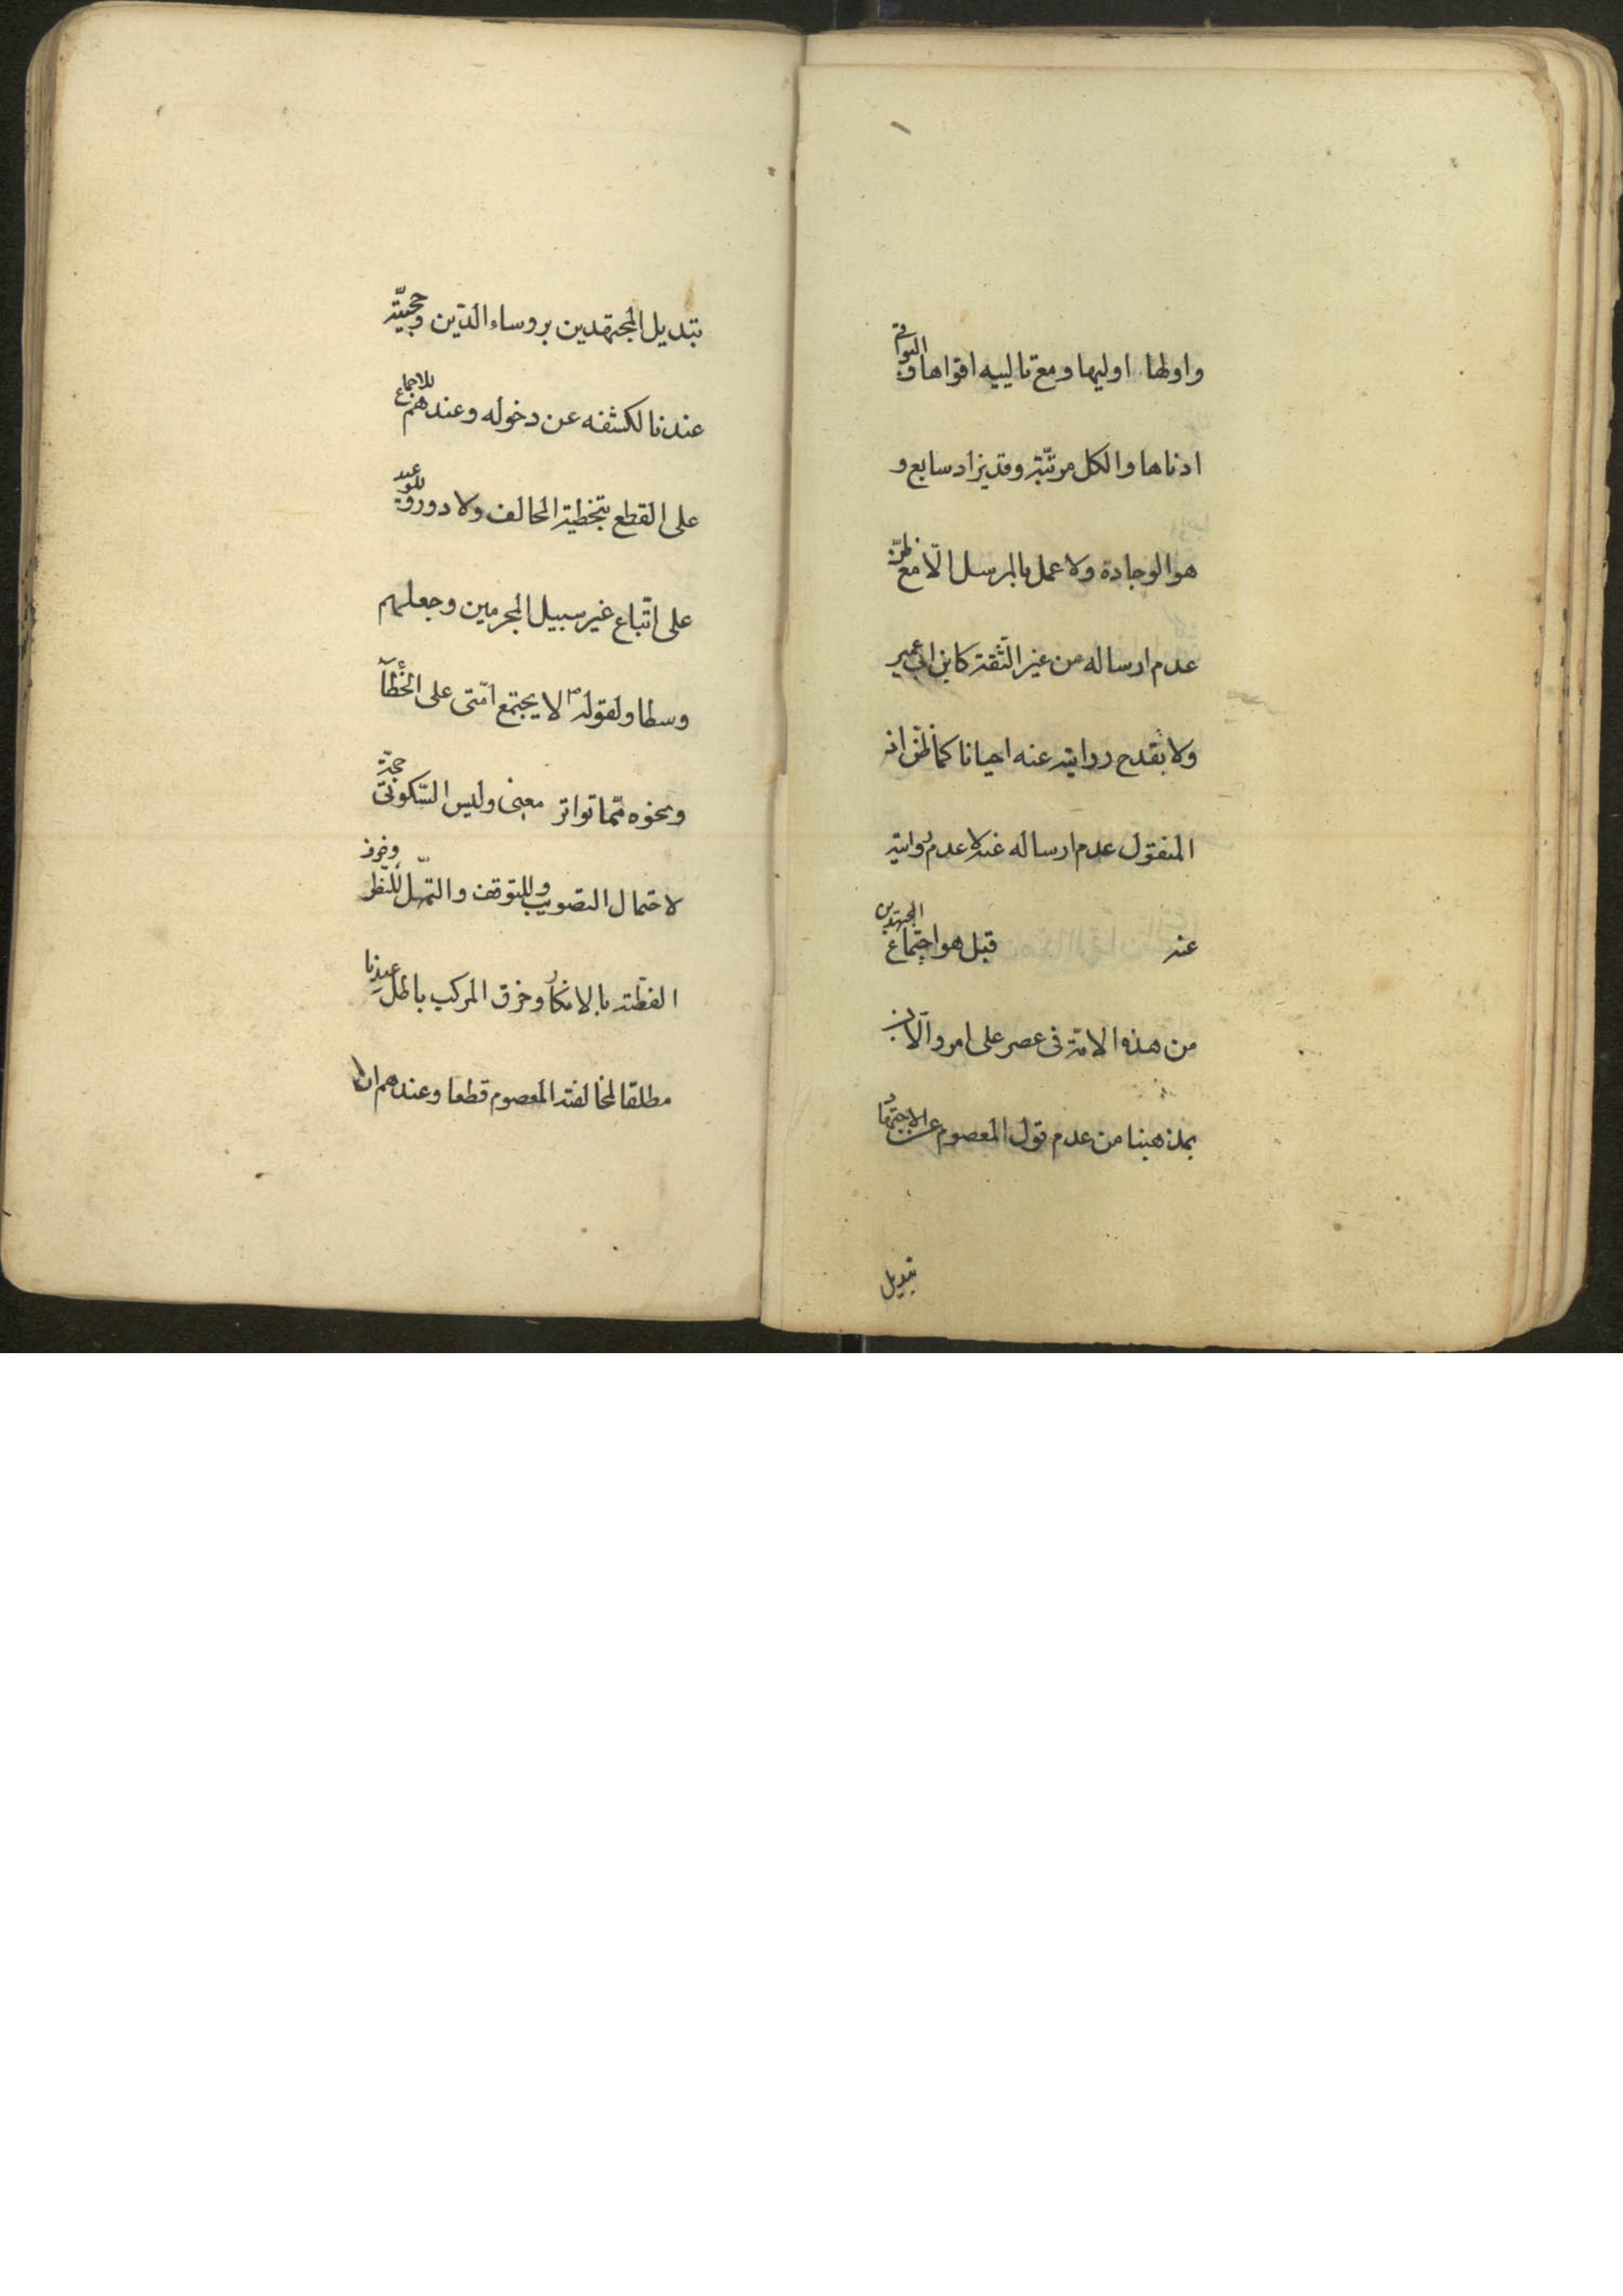 واولها اوليها ومع تالييه اقواها والبواقى
ادناها والكل مرتبة وقد يزاد سابع و
هو الوجادة ولا عمل بالمرسل الّا مع ظنّ
عدم ارساله من غير الثقة كابن ابى عمير
ولا يقدح روايته عنه احيانا كما ظن اذ
المنقول عدم ارساله عنه لا عدم روايته
عنه قيل هو اجتماع المجتهدين
من هذه الامة فى عصر على امر والآن
بمذهبنا من عدم قول المعصوم عن الاجتهاد
تبديل
تبديل المجتهدين بروساء الدّين وحجيّته
عندنا لكشفه عن دخوله وعندهم للاجماع
على القطع بتخطية المخالف ولا دور وللوعيد
على اتّباع غير سبيل المجرمين وجعلهم
وسطا ولقوله ص لا يجتمع امّتى على الخطأ
ونحوه ممّا تواتر معنى وليس السّكوتىّ حجّة
لاحتمال التصويب وللتوقف والتمهّل للنّظر وخوف
الفطنة بالانكار وخرق المركب باطل عندنا
مطلقا لمخالفته المعصوم قطعا وعندهم ان